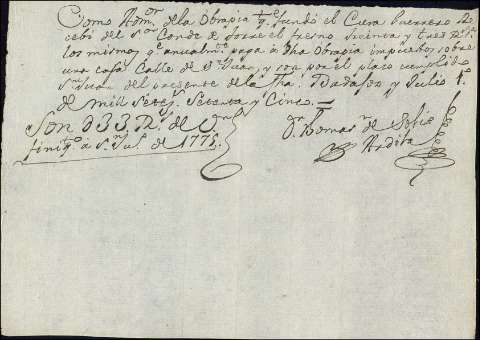 Como Adm.or de la Obrapia q.e fundó el Cura Guerrero Re
cebi del S.or Conde de Torre el fresno treinta y tres R.s
los mismos q.e anualm.te paga à dha Obrapia impuestos sobre
una casa Calle de S.n Juan, y son por el plazo cumplido
S.n Juan del presente de la fha. Badajoz y Julio 1.o
de mill Setez.s Setenta y Cinco =
Son 033 R.s de v.n
finiq.o a S.n Ju.n de 1775